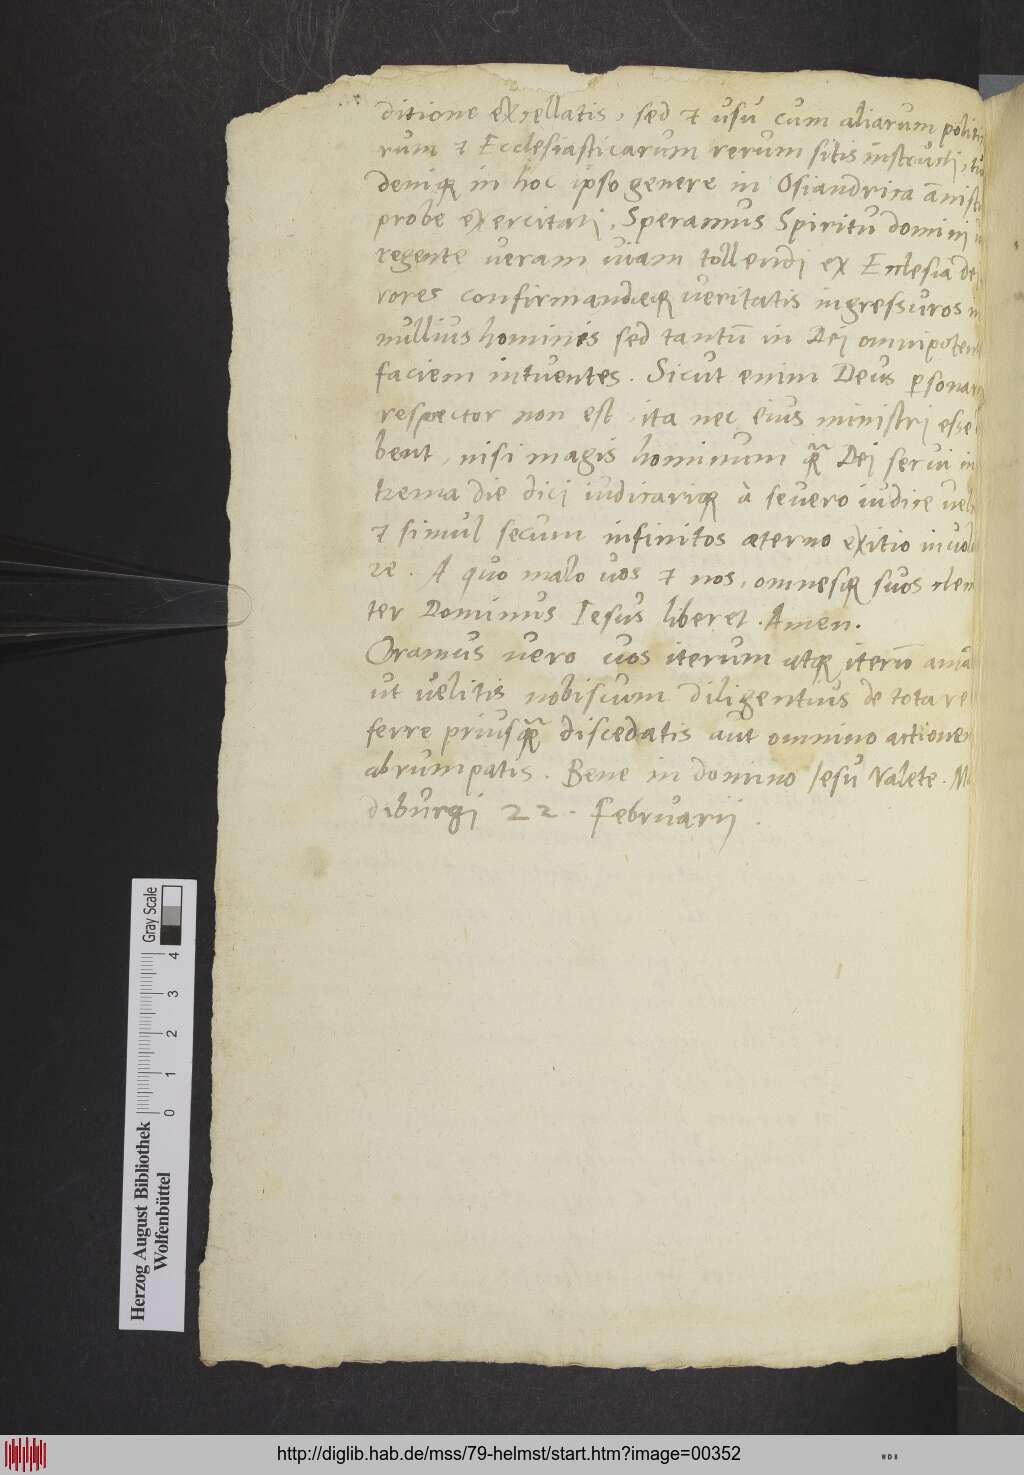 ditione excellatis, sed & usu cum aliarum politi
rum & Ecclesiasticarum rerum sitis instructi, tu
deniq in hoc ipso genere in Osiandrica
probe exercitati, Speramus Spiritu domini
regente veram viam tollendi ex Ecclesia
rores confirmandæq veritatis ingressuros
nullius hominis sed tantū in Dei omnipoten
faciem intuentes. Sicut enim Deus psonar
respector non est, ita nec eius ministri esse
bent, nisi magis hominum q̄ Dei servi in
trema die dici iudicariq à severo iudice vel
& simul secum infinitos æterno exitio invol
re. A quo malo vos & nos, omnesq suos clem
ter Dominus Iesus liberet. Amen.
Oramus vero vos iterum atq iterū
ut velitis nobiscum diligentius de tota re
ferre priusq̄ discedatis aut omnino actione
abrumpatis. Bene in domino Iesu Valete. M
diburgi 22. Februarii.
Gray Scale
0 1 2 3 4
Herzog August Bibliothek
Wolfenbüttel
http://diglib.hab.de/mss/79-helmst/start.htm?image=00352
WDB